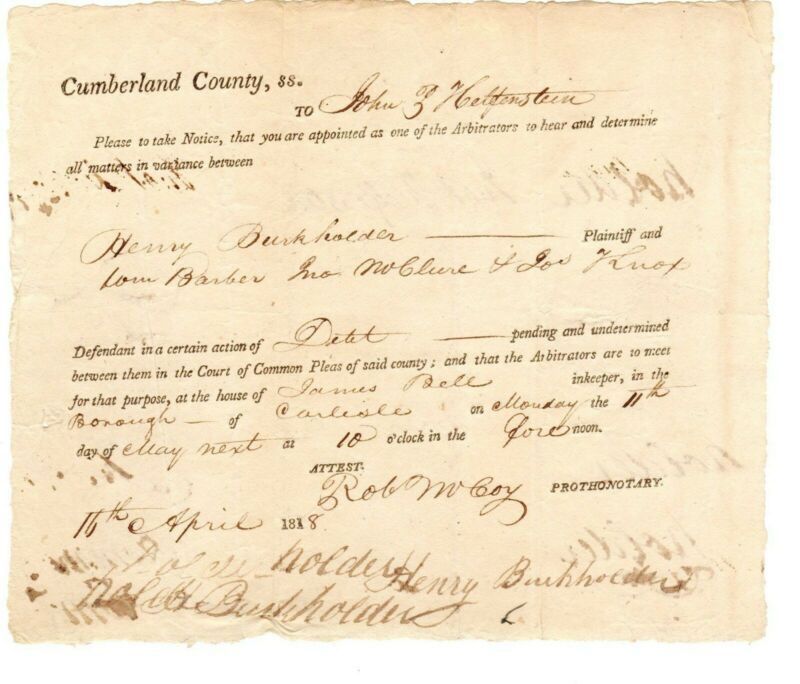 Cumberland County, ss.
TO John P Helfenstein
Please to take Notice, that you are appointed as one of the Arbitrators to hear and determine
all matters in variance between
Henry Burkholder Plaintiff and
Barber Jno McClure & Jos Knox
Defendant in a certain action of Debt pending and undetermined
between them in the Court of Common Pleas of said county; and that the Arbitrators are to meet
for that purpose, at the house of James Bell inkeeper, in the
Borough of Carlisle on Monday the 11th
day of May next at 10 o'clock in the fore noon.
ATTEST.
Rob McCoy PROTHONOTARY.
16th April 1818
holder Henry Burkholder
Burkholder